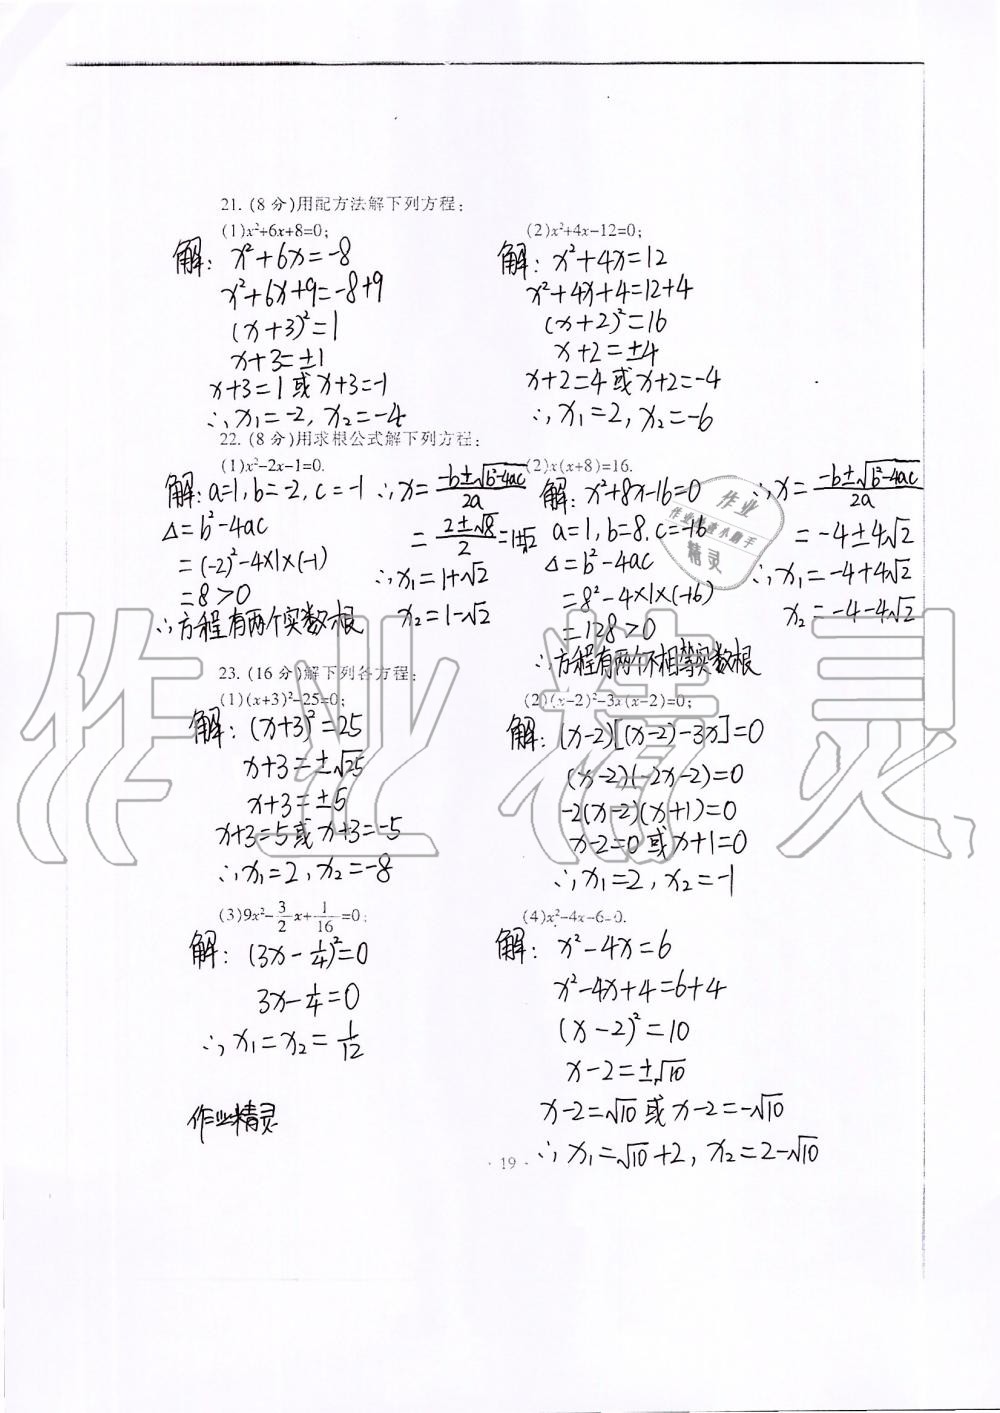 21. (8 分)用配方法解下列方程:
(1)x²+6x+8=0;
解: x²+6x=-8
x²+6x+9=-8+9
(x+3)²=1
x+3=±1
x+3=1或x+3=-1
∴x₁=-2, x₂=-4
(2)x²+4x-12=0;
解: x²+4x=12
x²+4x+4=12+4
(x+2)²=16
x+2=±4
x+2=4或x+2=-4
∴x₁=2, x₂=-6
22. (8 分)用求根公式解下列方程:
(1)x²-2x-1=0.
解: a=1, b=-2, c=-1
Δ=b²-4ac
=(-2)²-4×1×(-1)
=8>0
∴方程有两个实数根
∴x=(-b±√(b²-4ac))/2a
=(2±√8)/2=1±√2
∴x₁=1+√2
x₂=1-√2
(2)x(x+8)=16.
解: x²+8x-16=0
a=1, b=8, c=-16
Δ=b²-4ac
=8²-4×1×(-16)
=128>0
∴方程有两个不相等实数根
∴x=(-b±√(b²-4ac))/2a
=-4±4√2
∴x₁=-4+4√2
x₂=-4-4√2
23. (16 分)解下列各方程:
(1)(x+3)²-25=0;
解: (x+3)²=25
x+3=±√25
x+3=±5
x+3=5或x+3=-5
∴x₁=2, x₂=-8
(2)(x-2)²-3x(x-2)=0;
解: (x-2)[(x-2)-3x]=0
(x-2)(-2x-2)=0
-2(x-2)(x+1)=0
x-2=0或x+1=0
∴x₁=2, x₂=-1
(3)9x²-3/2x+1/16=0;
解: (3x-1/4)²=0
3x-1/4=0
∴x₁=x₂=1/12
作业精灵
(4)x²-4x-6=0.
解: x²-4x=6
x²-4x+4=6+4
(x-2)²=10
x-2=±√10
x-2=√10或x-2=-√10
∴x₁=√10+2, x₂=2-√10
· 19 ·
作业精灵
作业
精灵